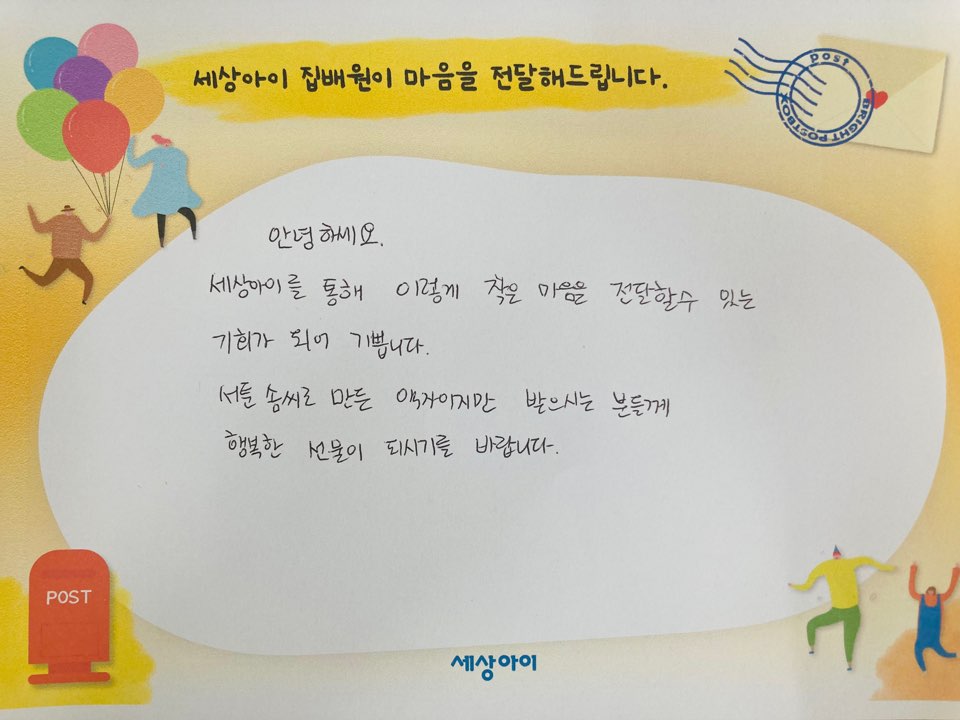 세상아이 집배원이 마음을 전달해드립니다.
post
BRIGHT POSTBOX
안녕하세요.
세상아이를 통해 이렇게 작은 마음을 전달할수 있는
기회가 되어 기쁩니다.
서툰 솜씨로 만든 액자이지만 받으시는 분들께
행복한 선물이 되시기를 바랍니다.
POST
세상아이